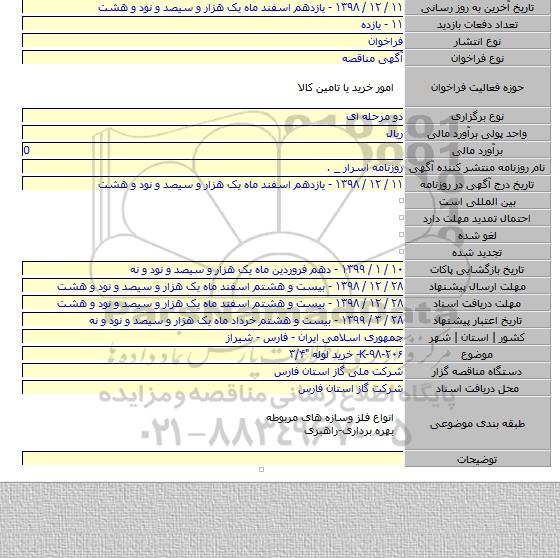 تاریخ آخرین به روز رسانی ۱۱ / ۱۲ / ۱۳۹۸ - یازدهم اسفند ماه یک هزار و سیصد و نود و هشت
تعداد دفعات بازدید ۱۱ - یازده
نوع انتشار فراخوان
نوع فراخوان آگهی مناقصه
حوزه فعالیت فراخوان امور خرید با تامین کالا
نوع برگزاری دو مرحله ای
واحد پولی برآورد مالی ریال
برآورد مالی 0
نام روزنامه منتشر کننده آگهی روزنامه اسرار _ .
تاریخ درج آگهی در روزنامه ۱۱ / ۱۲ / ۱۳۹۸ - یازدهم اسفند ماه یک هزار و سیصد و نود و هشت
بین المللی است
احتمال تمدید مهلت دارد
لغو شده
تجدید شده
تاریخ بازگشایی پاکات ۱۰ / ۱ / ۱۳۹۹ - دهم فروردین ماه یک هزار و سیصد و نود و نه
مهلت ارسال پیشنهاد ۲۸ / ۱۲ / ۱۳۹۸ - بیست و هشتم اسفند ماه یک هزار و سیصد و نود و هشت
مهلت دریافت اسناد ۲۸ / ۱۲ / ۱۳۹۸ - بیست و هشتم اسفند ماه یک هزار و سیصد و نود و هشت
تاریخ اعتبار پیشنهاد ۲۸ / ۳ / ۱۳۹۹ - بیست و هشتم خرداد ماه یک هزار و سیصد و نود و نه
کشور | استان | شهر جمهوری اسلامی ایران - فارس - شیراز
موضوع K-۹۸-۲۰۶- خرید لوله "۳/۴
دستگاه مناقصه گزار شرکت ملی گاز استان فارس
محل دریافت اسناد شرکت گاز استان فارس
طبقه بندی موضوعی انواع فلز وسازه های مربوطه
بهره برداری-راهبری
توضیحات
پایگاه اطلاع رسانی مناقصه و مزایده
۰۲۱-۸۸۳۴۹۶۷۰-۵